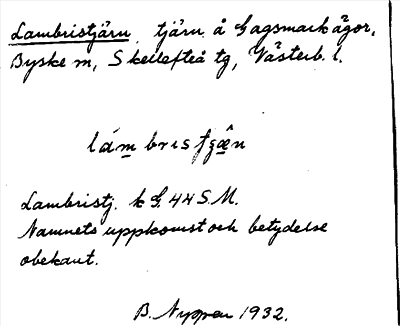 Lambristjärn tjärn å Gagsmark ägor,
Byske sn, Skellefteå tg, Västerb. l.
lámbristjæ̂n
Lambristj. k G. 44 S.M.
Namnets uppkomst och betydelse
obekant.
B. Nyman 1932.